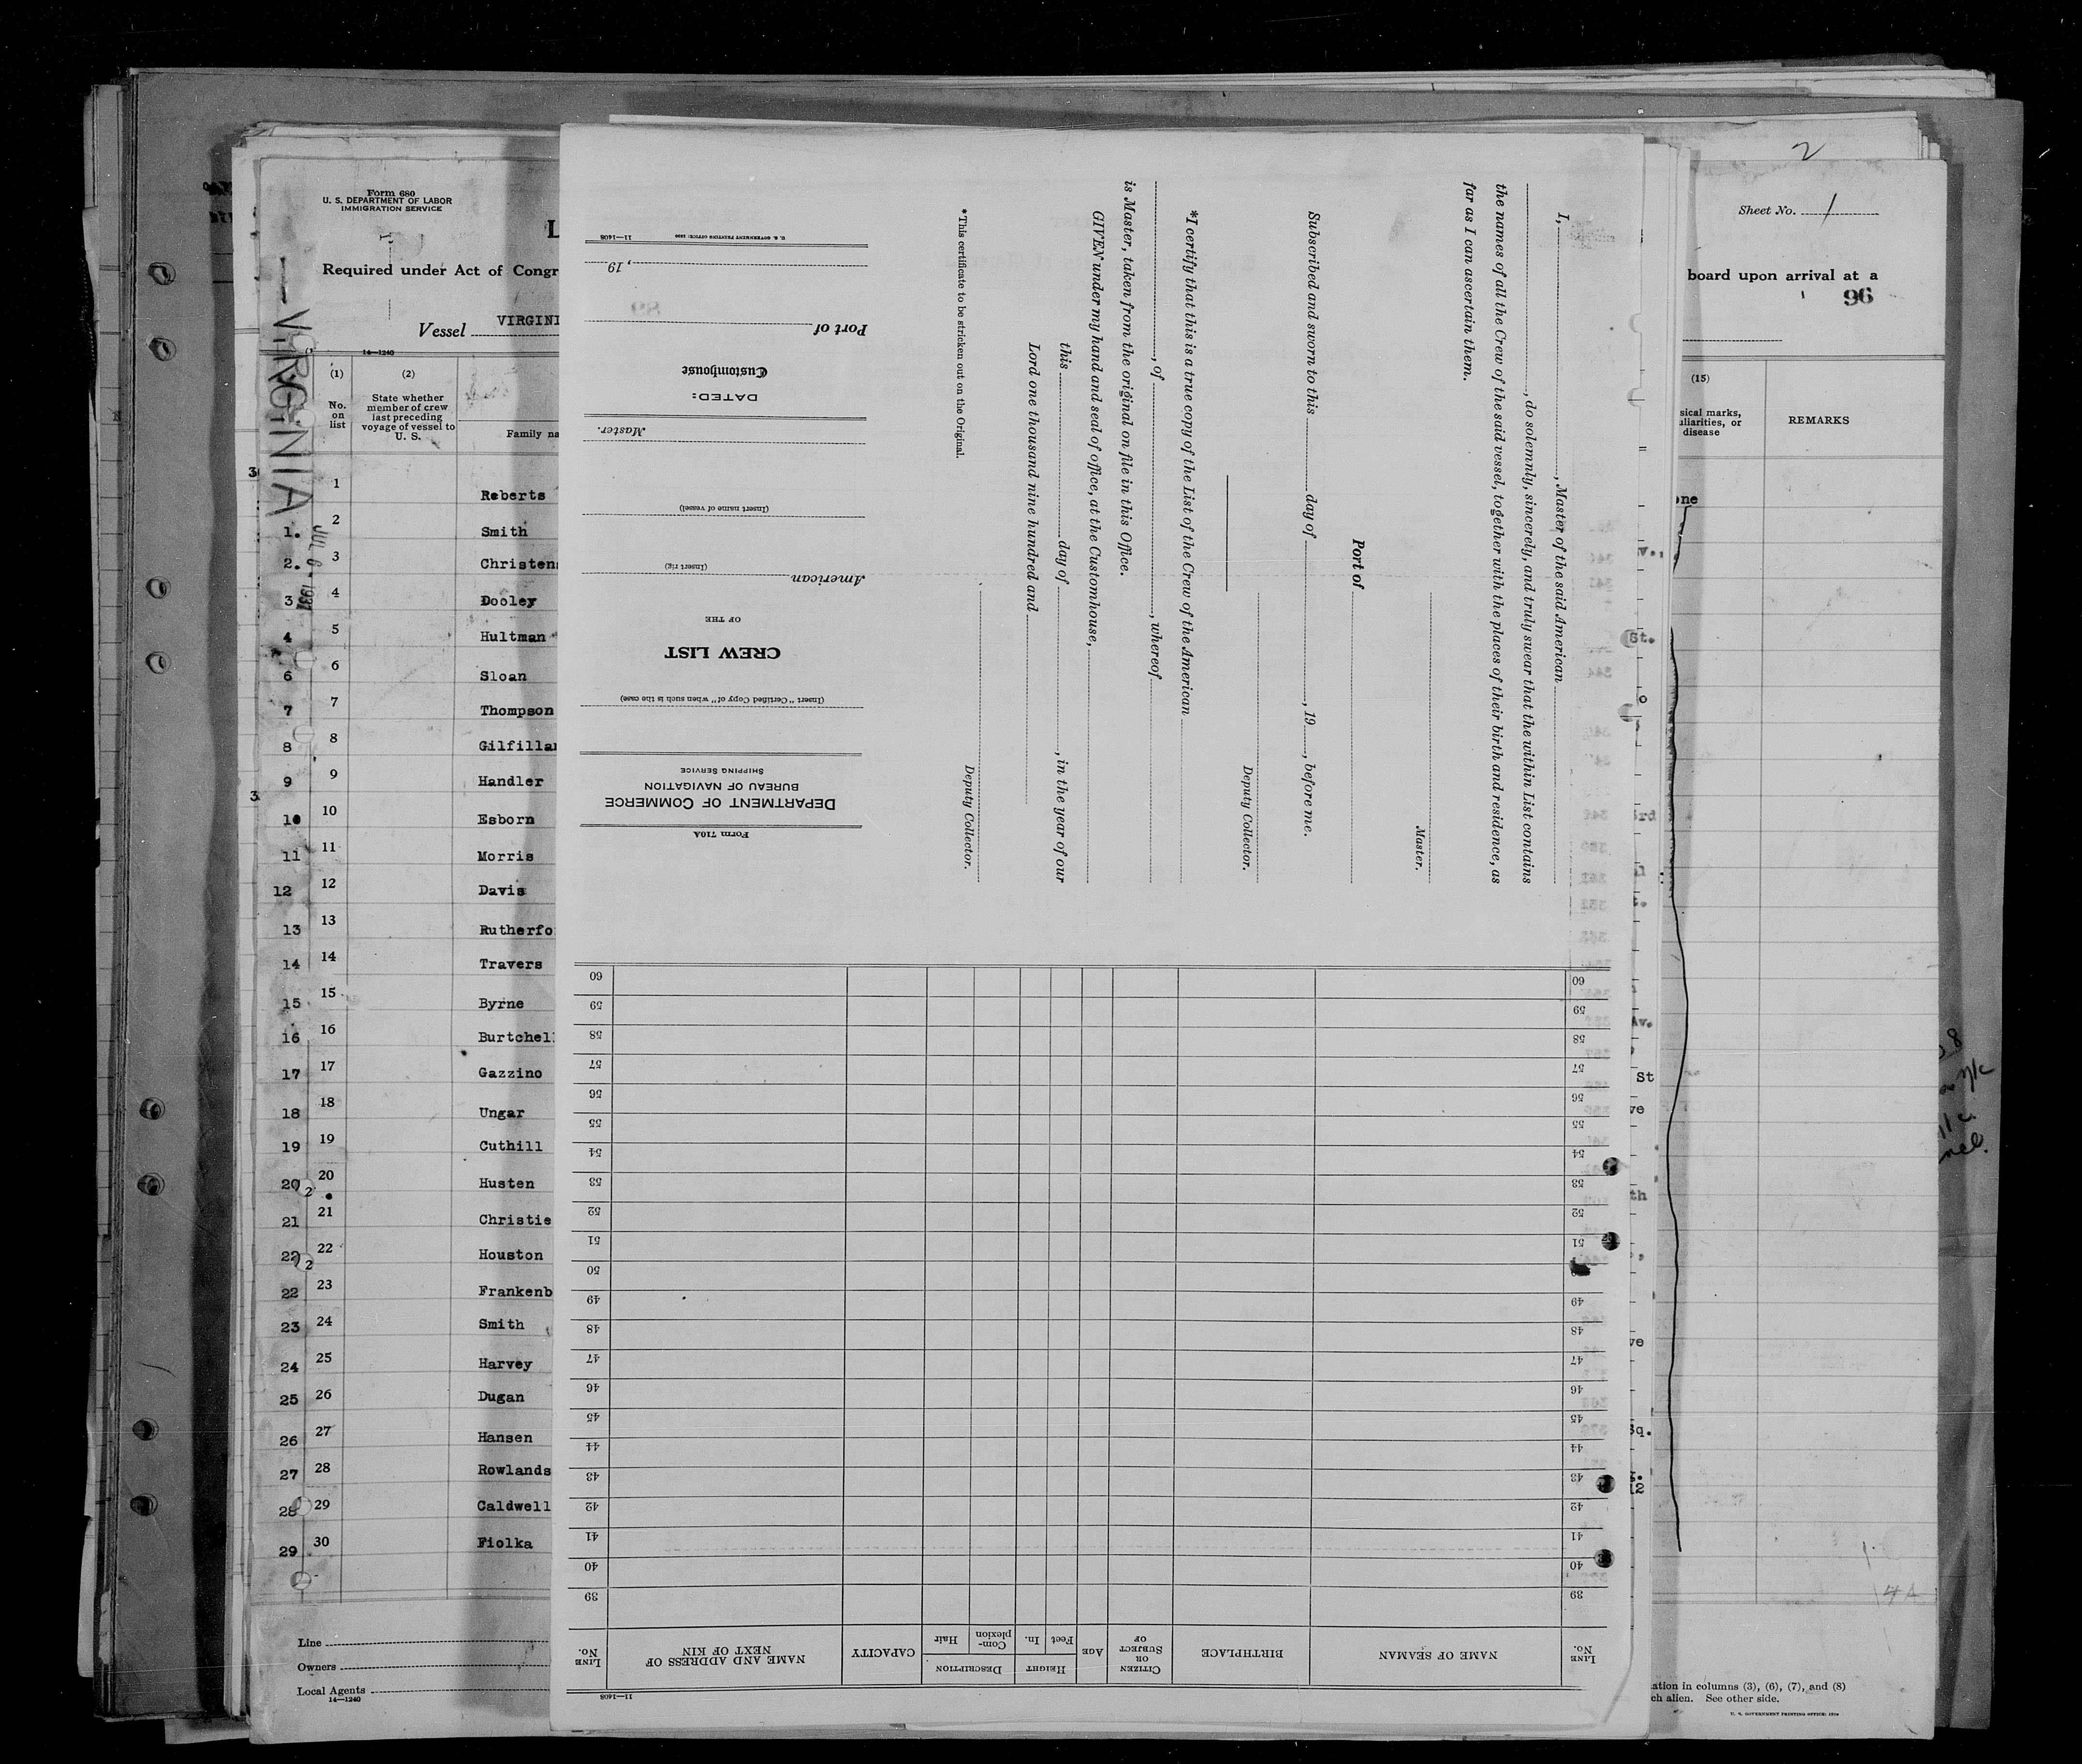 2
Form 680
U. S. DEPARTMENT OF LABOR
IMMIGRATION SERVICE
Sheet No. 1
Required under Act of Congr
board upon arrival at a
96
Vessel VIRGINI
14—1240
VIRGINIA
JUL 6 - 1931
(1)
No. on list
(2)
State whether member of crew last preceding voyage of vessel to U. S.
Family na
(15)
sical marks,
uliarities, or
disease
REMARKS
one
1 Roberts
1. 2 Smith
2. 3 Christens
3 4 Dooley
4 5 Hultman
6 6 Sloan
7 7 Thompson
8 8 Gilfillan
9 9 Handler
10 10 Esborn
11 11 Morris
12 12 Davis
13 13 Rutherfo
14 14 Travers
15 15 Byrne
16 16 Burtchell
17 17 Gazzino
18 18 Ungar
19 19 Cuthill
20 20 Husten
21 21 Christie
22 22 Houston
22 23 Frankenb
23 24 Smith
24 25 Harvey
25 26 Dugan
26 27 Hansen
27 28 Rowlands
28 29 Caldwell
29 30 Fiolka
Line
Owners
Local Agents
14—1240
I, , Master of the said American
, do solemnly, sincerely, and truly swear that the within List contains
the names of all the Crew of the said vessel, together with the places of their birth and residence, as
far as I can ascertain them.
Master.
Port of
Subscribed and sworn to this day of , 19 , before me.
Deputy Collector.
*I certify that this is a true copy of the List of the Crew of the American
, of , whereof
is Master, taken from the original on file in this Office.
GIVEN under my hand and seal of office, at the Customhouse,
this day of , in the year of our
Lord one thousand nine hundred and
Deputy Collector.
*This certificate to be stricken out on the Original.
Form 710A
DEPARTMENT OF COMMERCE
BUREAU OF NAVIGATION
SHIPPING SERVICE
(Insert "Certified Copy of" when such is the case)
CREW LIST
OF THE
American
(Insert rig)
(Insert name of vessel)
Master.
DATED:
Customhouse
Port of
, 19
11—1408
U. S. GOVERNMENT PRINTING OFFICE: 1930
11—1408
LINE No.
NAME OF SEAMAN
BIRTHPLACE
CITIZEN OR SUBJECT OF
AGE
HEIGHT
Feet
In.
DESCRIPTION
Com-plexion
Hair
CAPACITY
NAME AND ADDRESS OF NEXT OF KIN
LINE No.
39 39
40 40
41 41
42 42
43 43
44 44
45 45
46 46
47 47
48 48
49 49
50
51 51
52 52
53 53
54 54
55 55
56 56
57 57
58 58
59 59
60 60
St.
o
rd
Av.
St
ve
th
ve
Sq.
ation in columns (3), (6), (7), and (8)
ch alien. See other side.
U. S. GOVERNMENT PRINTING OFFICE